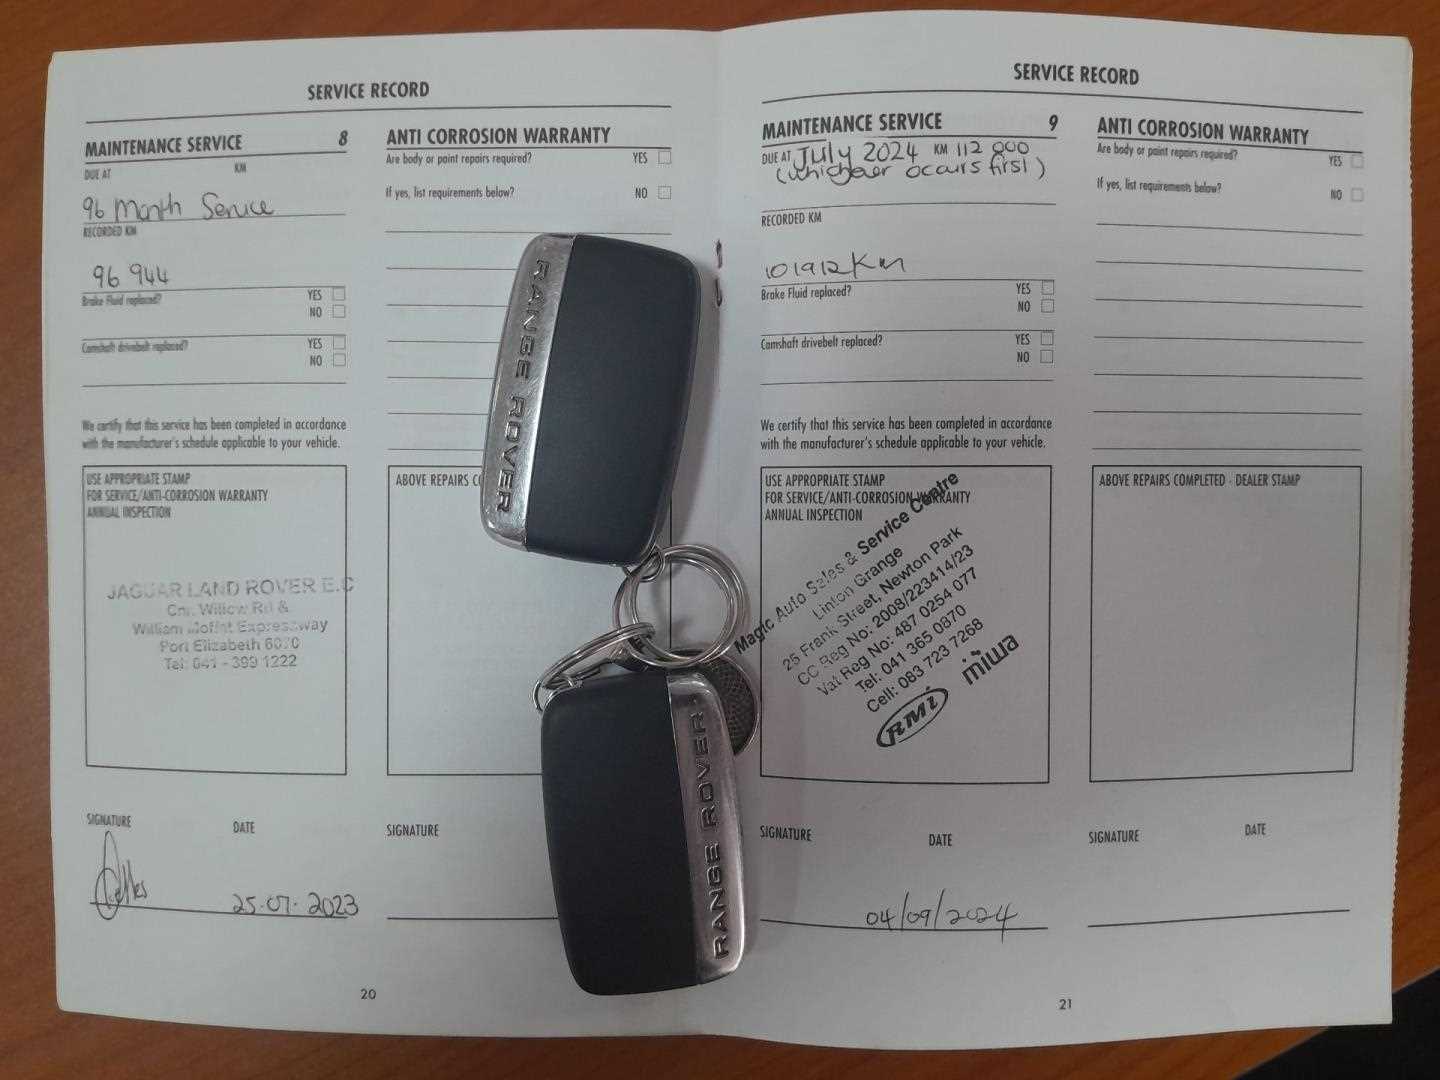 SERVICE RECORD
MAINTENANCE SERVICE 8
DUE AT KM
96 Month Service
RECORDED KM
96 944
Brake Fluid replaced? YES
NO
Camshaft drivebelt replaced? YES
NO
We certify that this service has been completed in accordance
with the manufacturer's schedule applicable to your vehicle.
USE APPROPRIATE STAMP
FOR SERVICE/ANTI-CORROSION WARRANTY
ANNUAL INSPECTION
JAGUAR LAND ROVER E.C
Cnr. Willow Rd &
William Moffat Expressway
Port Elizabeth 6070
Tel: 041 - 399 1222
SIGNATURE DATE
25.07.2023
ANTI CORROSION WARRANTY
Are body or paint repairs required? YES
If yes, list requirements below? NO
ABOVE REPAIRS
SIGNATURE
20
RANGE ROVER
RANGE ROVER
SERVICE RECORD
MAINTENANCE SERVICE 9
DUE AT July 2024 KM 112 000
(whichever occurs first)
RECORDED KM
101912 Km
Brake Fluid replaced? YES
NO
Camshaft drivebelt replaced? YES
NO
We certify that this service has been completed in accordance
with the manufacturer's schedule applicable to your vehicle.
USE APPROPRIATE STAMP
FOR SERVICE/ANTI-CORROSION WARRANTY
ANNUAL INSPECTION
Magic Auto Sales & Service Centre
Linton Grange
25 Frank Street, Newton Park
CC Reg No: 2008/223414/23
Vat Reg No: 487 0254 077
Tel: 041 365 0870
Cell: 083 723 7268
RMi miwa
SIGNATURE DATE
04/09/2024
ANTI CORROSION WARRANTY
Are body or paint repairs required? YES
If yes, list requirements below? NO
ABOVE REPAIRS COMPLETED - DEALER STAMP
SIGNATURE DATE
21